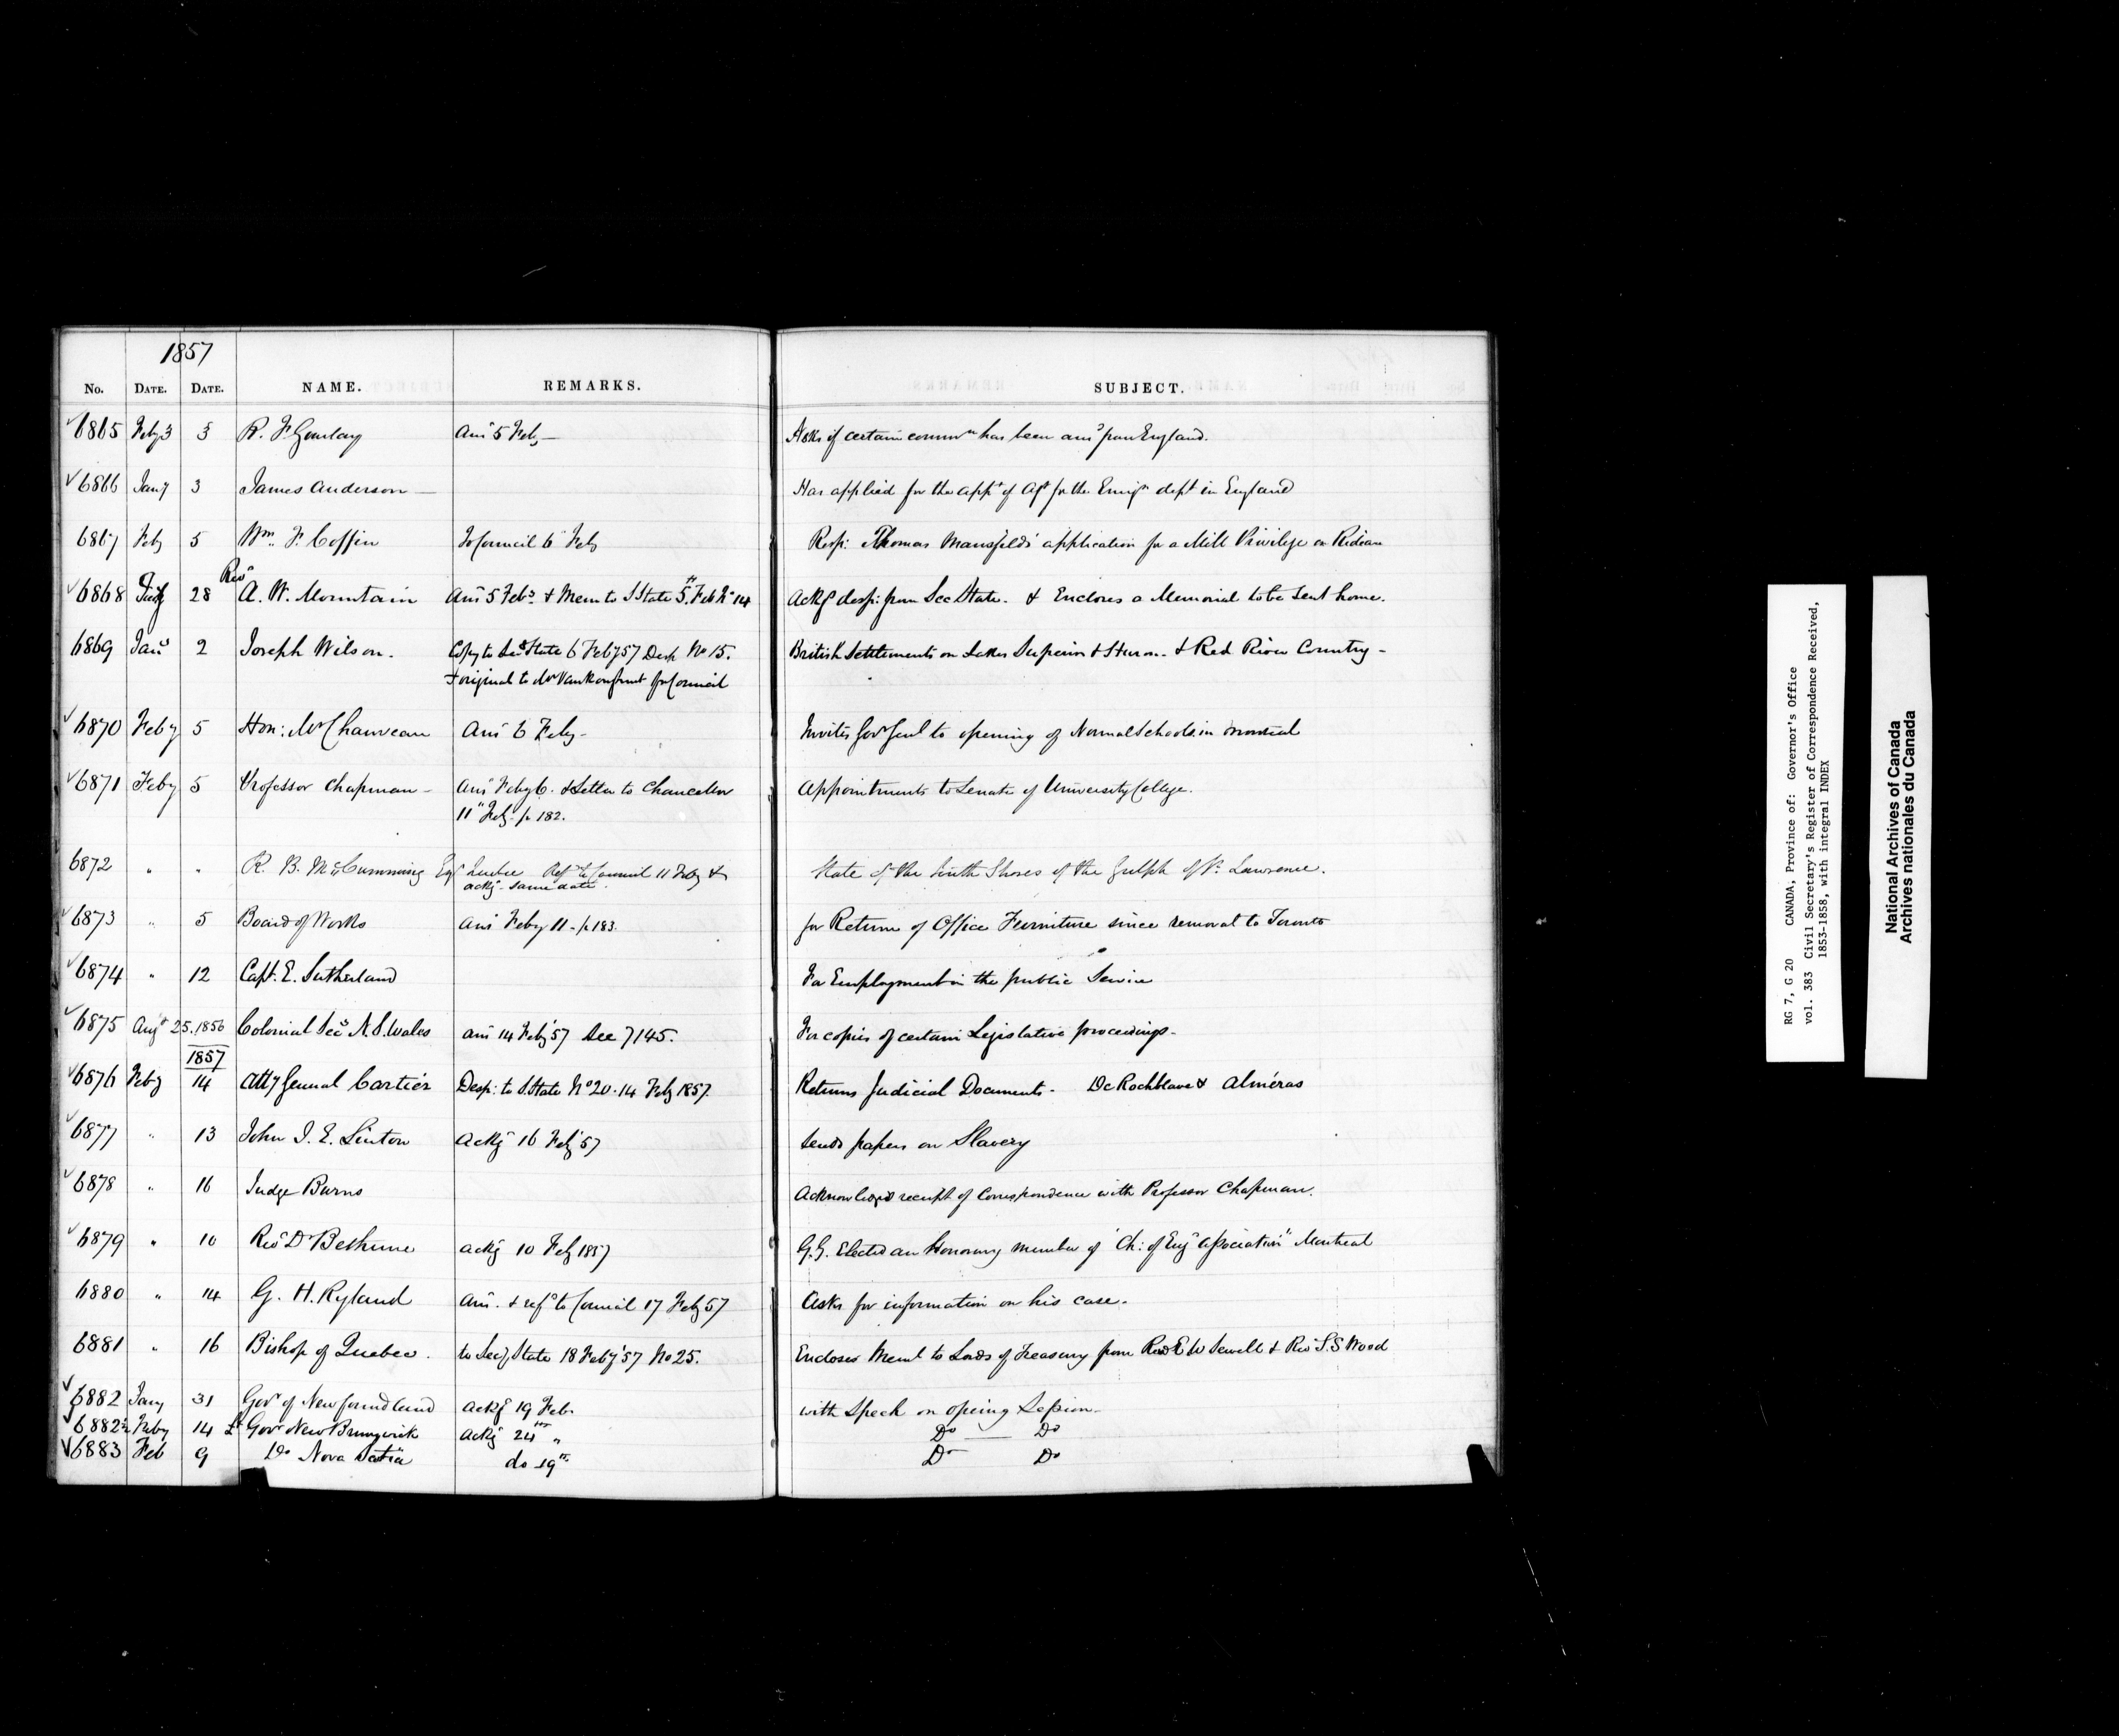 1857
No. DATE. DATE. NAME. REMARKS. SUBJECT.
6865 Feby 3 3 R. F. Gourlay Ans 5 Feby — Asks if certain commn has been ansd from England.
6866 Jany 3 James Anderson — Has applied for the appt of Agt for the Emign dept in England
6867 Feby 5 Wm. F. Coffin To Council 6 Feby Resp: Thomas Mansfield's application for a Mill Privilege on Rideau
6868 28 Revd A. W. Mountain Ans 5 Feby. & Mem to S State 5th Feb No 14 Ackg desp: from Sec State. & Encloses a Memorial to be sent home.
6869 Jany 2 Joseph Wilson. Copy to Secy State 6 Feby 57 Desp No 15. British Settlements on Lakes Superior & Huron. & Red River Country -
& original to Mr Vankoughnet for Council
6870 Feby 5 Hon: Mr Chauveau Ans 6 Feby - Invites Govr Genl to opening of Normal Schools in Montreal
6871 Feby 5 Professor Chapman - Ans Feby 6. & letter to Chancellor Appointments to Senate of University College.
11th Feby p 182.
6872 " " R. B. McCumming Esqr Quebec Refd to Council 11 Feby & State of the South Shores of the Gulph of St. Lawrence.
ackg. same date.
6873 " 5 Board of Works Ans Feby 11 - p 183. for Return of Office Furniture since removal to Toronto
6874 " 12 Capt. E. Sutherland For Employment in the public Service
6875 Augt 25. 1856 Colonial Secy N. S. Wales ans 14 Feby 57 See 7145. For copies of certain Legislative proceedings -
1857
6876 Feby 14 Atty General Cartier Desp: to S. State No 20. 14 Feby 1857. Returns Judicial Documents - De Rochblave & Alméras
6877 " 13 John J. E. Linton Ackg 16 Feby 57 Sends papers on Slavery
6878 " 16 Judge Burns Acknowledges receipt of Correspondence with Professor Chapman.
6879 " 10 Revd Dr Bethune ackg 10 Feby 1857 G.G. Elected an Honorary member of "Ch: of Eng Association" Montreal
6880 " 14 G. H. Ryland Ans. & refd to Council 17 Feby 57 Asks for information on his case.
6881 " 16 Bishop of Quebec. to Secy State 18 Feby '57 No 25. Encloses Meml to Lords of Treasury from Revd E W Sewell & Revd S. S Wood
6882 Jany 31 Govr of Newfoundland Ackg 19 Feb. with Speech on opening Session -
6882½ Feby 14 Lt Govr New Brunswick Ackg 24th " Do — Do
6883 Feb 9 Do Nova Scotia do 19th Do Do
RG 7, G 20 CANADA, Province of: Governor's Office
vol. 383 Civil Secretary's Register of Correspondence Received,
1853-1858, with integral INDEX
National Archives of Canada
Archives nationales du Canada